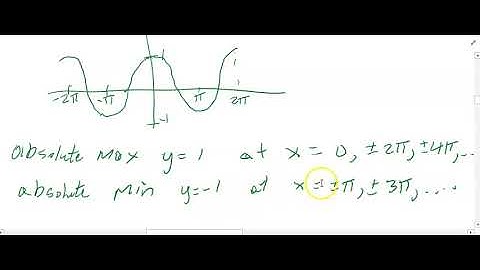 1
-2π -π π 2π
-1
absolute max y=1 at x = 0, ±2π, ±4π,...
absolute min y=-1 at x = ±π, ±3π, ....